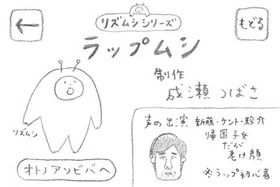 リズムシシリーズ
もどる
ラップムシ
制作
成瀬つばさ
リズムシ
オトノアソビバへ
声の出演 新藤・ケント・駿介
帰国子女
だが
老け顔
※ラップ初心者